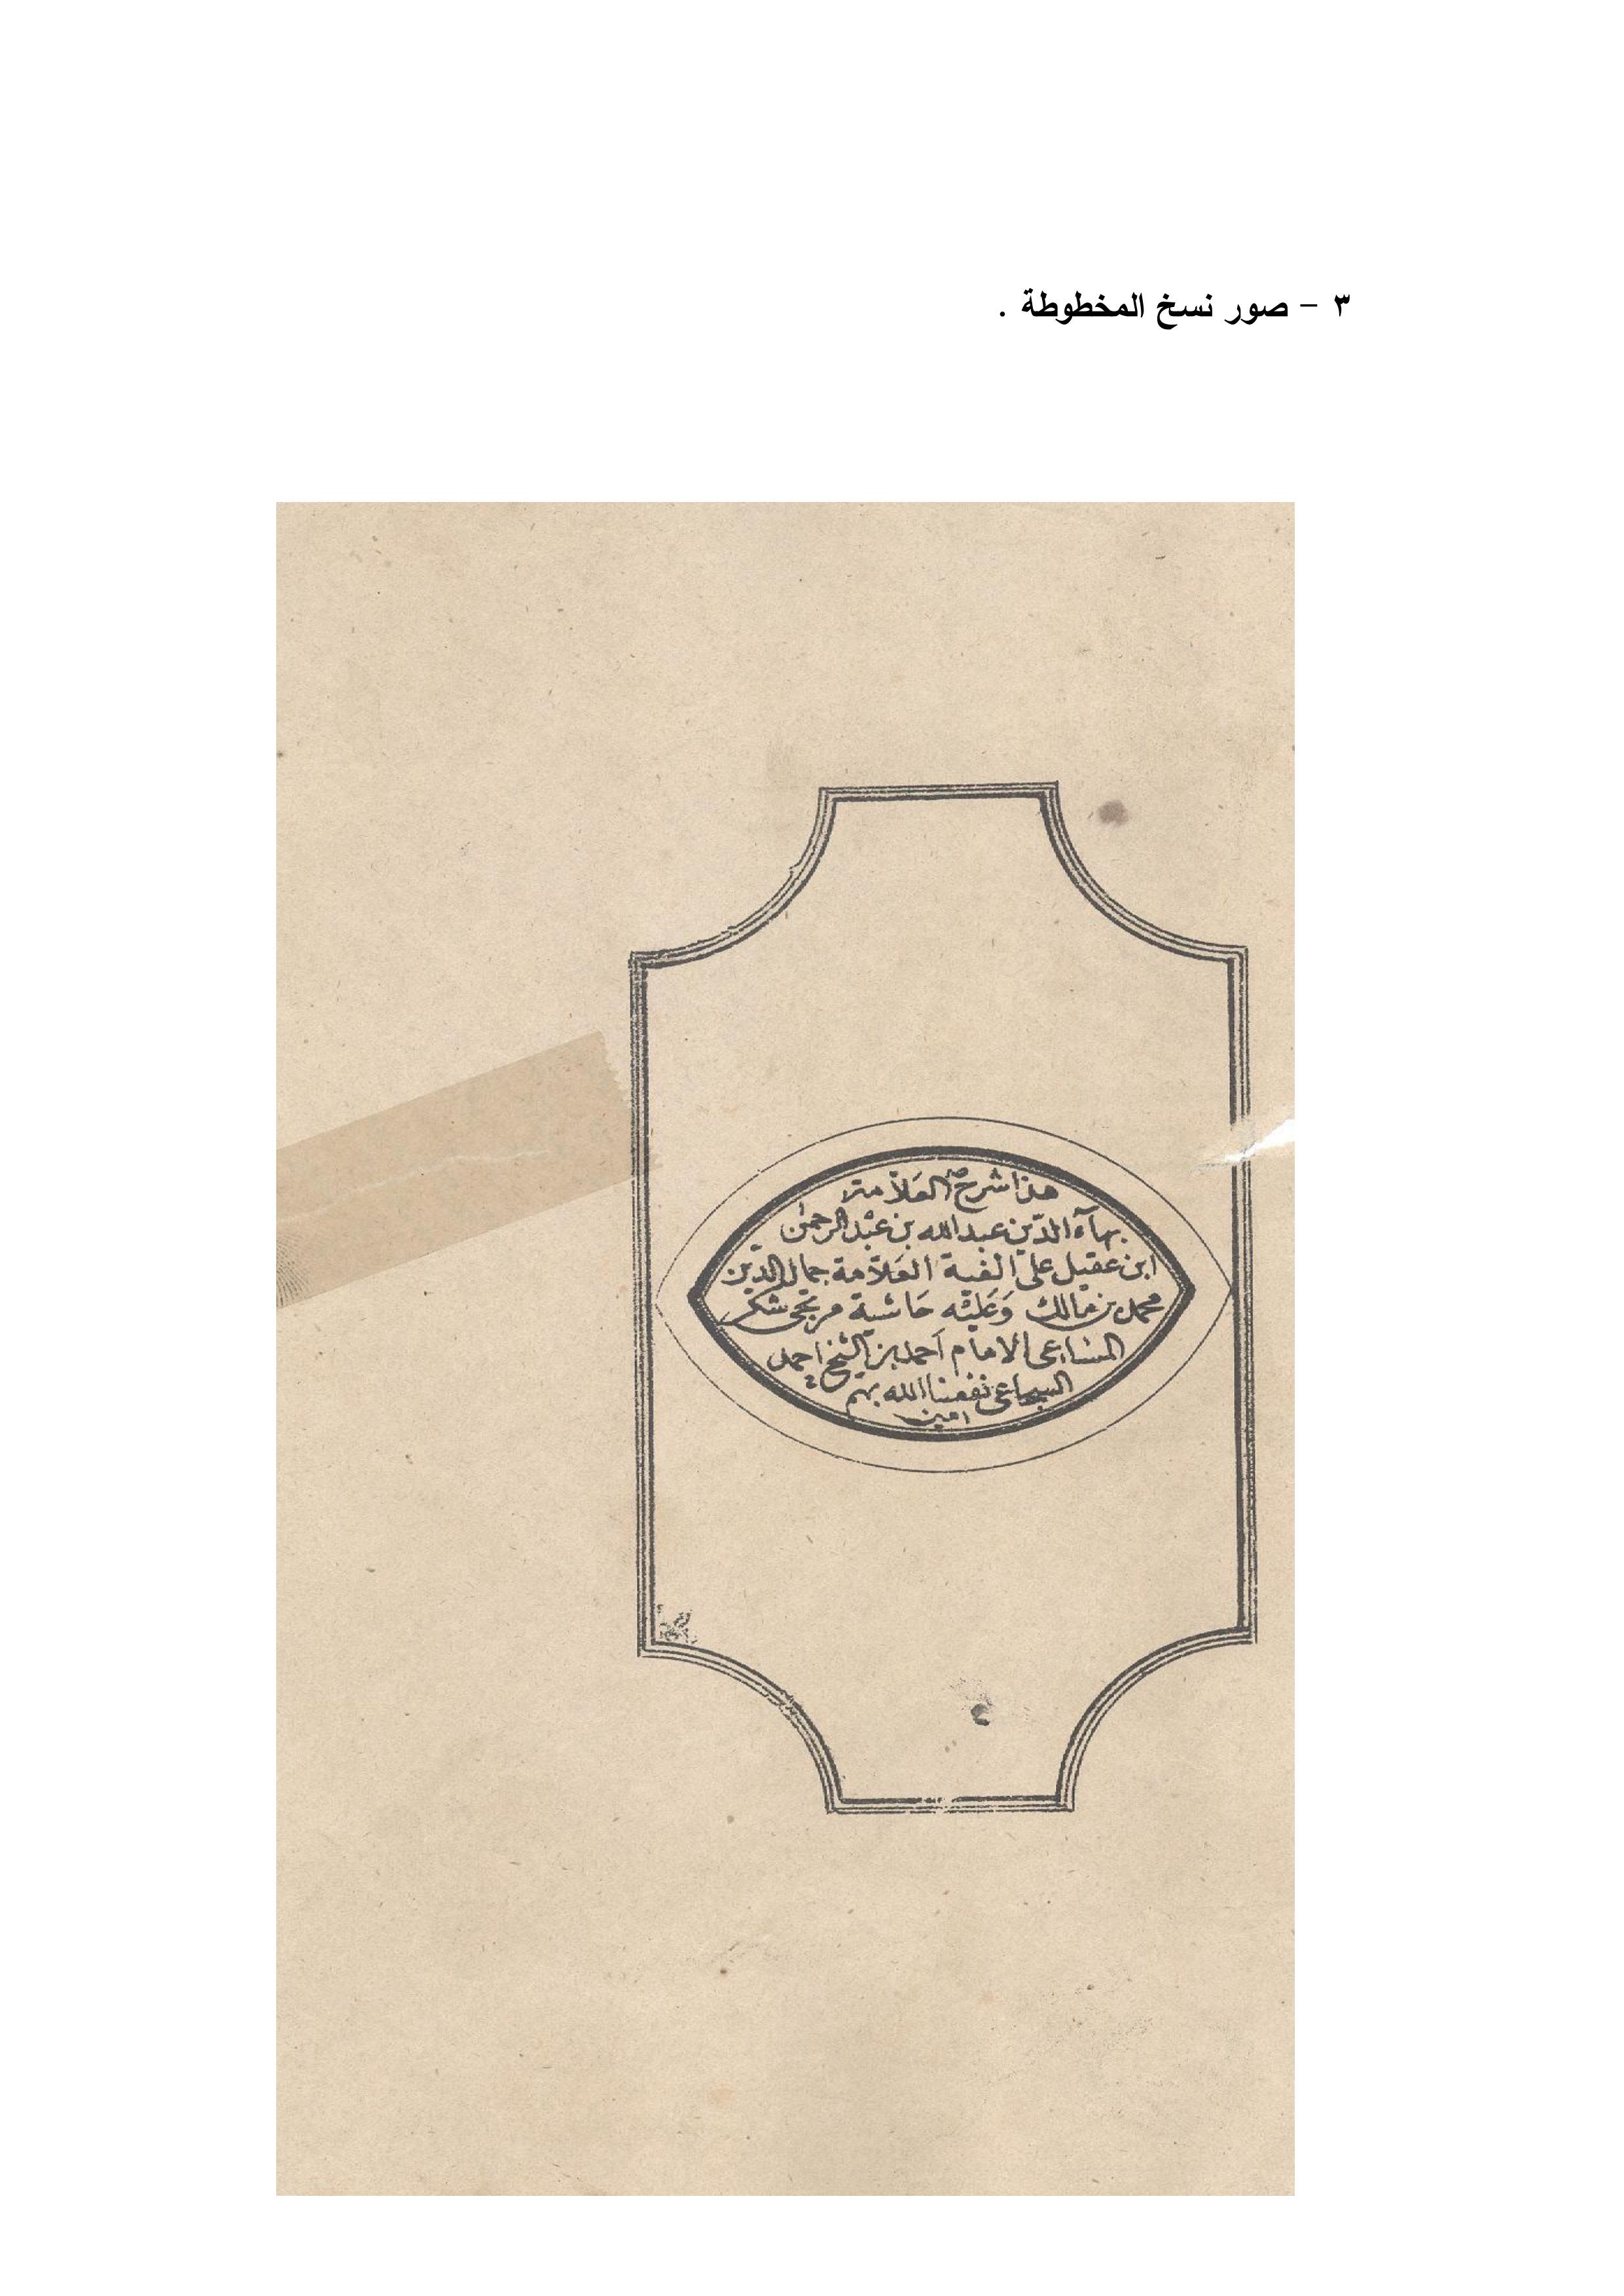 ٣ - صور نسخ المخطوطة .
هذا شرح العَلاّمة
بهآء الدّين عبد الله بن عبْد الرحمن
ابن عقيل على الفية العَلاّمة جمال الدّين
محمد بن مالك وَعَليْه حَاشية مرتجى شكر
المساعى الامام اَحمد بن الشيخ احمد
السجاعى نفعنا الله بهم
امين